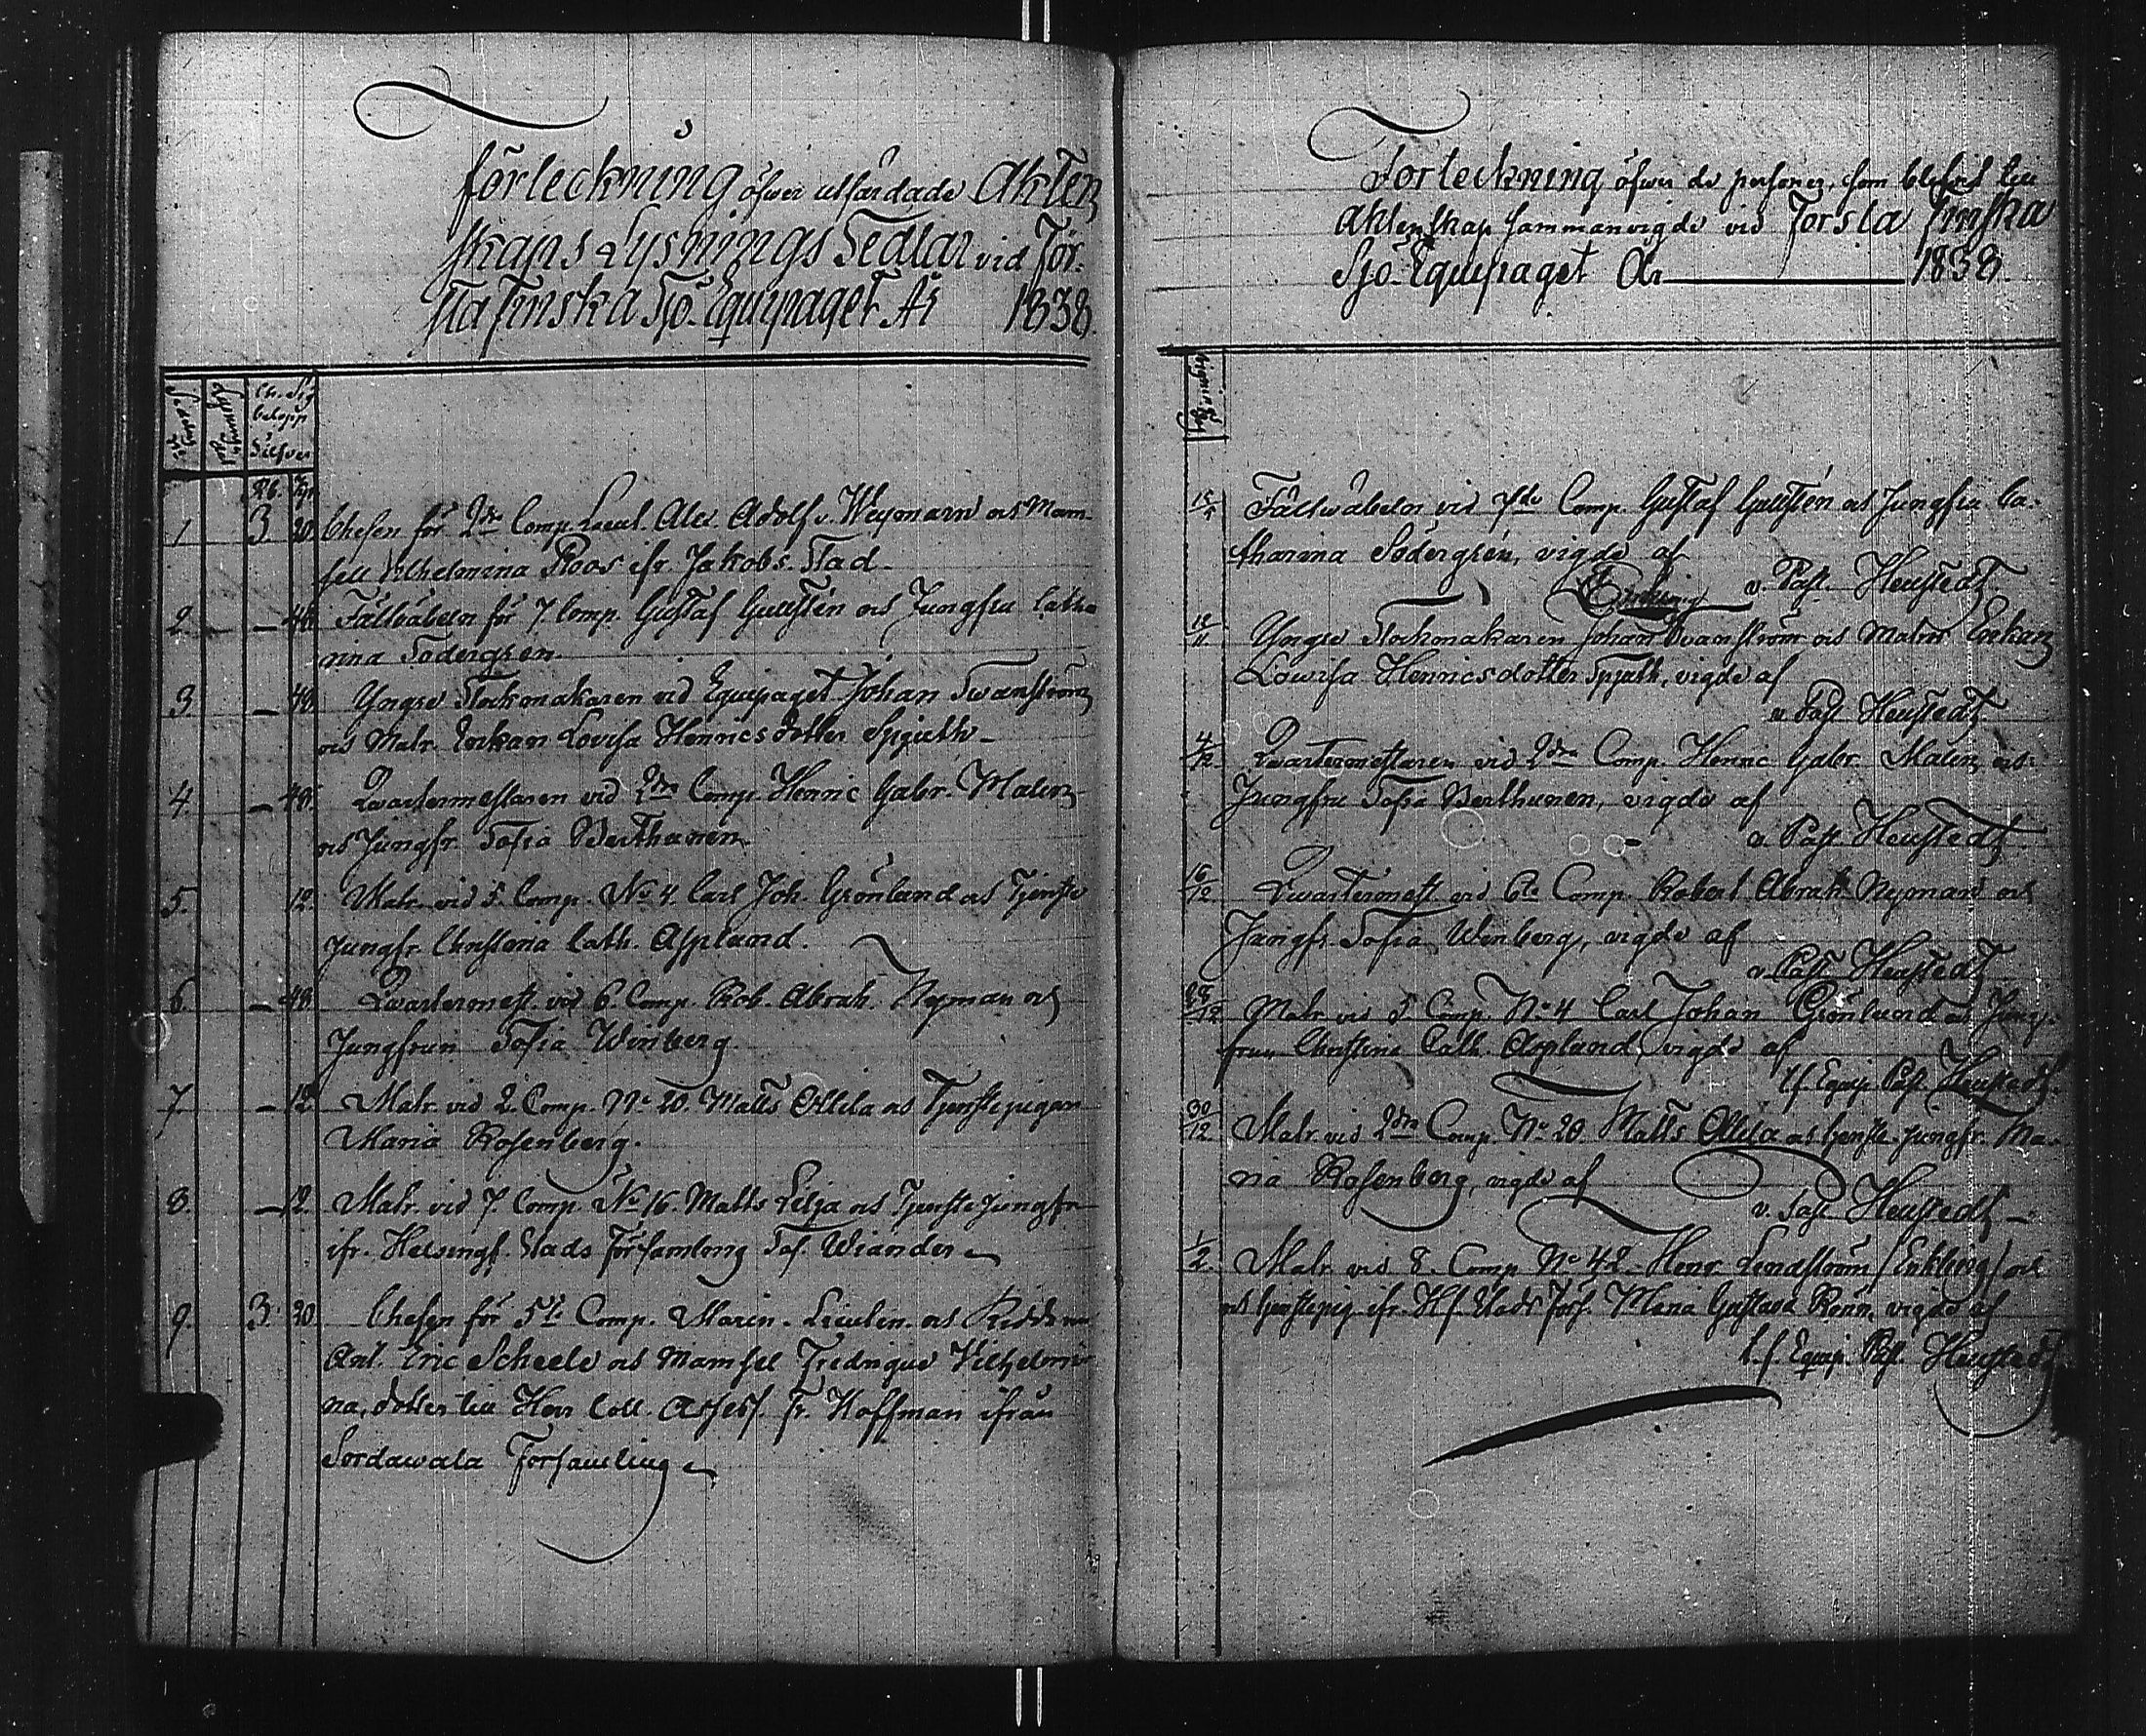 Förteckning öfver utfärdade Äkten
skaps Lysnings Sedlar vid För-
sta Finska Sjö-Equipaget År 1838.
Ch. Sig
belopp
Silfver
Rb. Kop
1 3 20 Chefen för 2dra Comp. Lieut. Alex. Adolf v. Weymarn och Mam-
sell Vilhelmina Roos ifr. Jakobs-Stad
2. — 48 Fältväbeln för 7. Comp. Gustaf Gustén och Jungfru Catha
rina Södergren.
3. — 48 Yngre Stockmakaren vid Equipaget Johan Swanström
och Matr. Enkan Lovisa Henrics dotter
4. — 48. Qwartermestaren vid 2dra Comp. Henric Gabr. Malen
och Jungfr. Sofia Berthunen
5. 12. Matr. vid 5. Comp. No 4. Carl Joh. Grönlund och Tjenste
Jungfr. Christina Cath. Asplund.
6. — 48 Qwartermest. vid 6. Comp. Rob. Abrah. Nyman och
Jungfrun Sofia Winberg.
7 — 12 Matr. vid 2. Comp. No 20. Matts Ollila och Tjenstepigan
Maria Rosenberg.
8. — 12. Matr. vid 7. Comp. No 16. Matts Lilja och Tjenste jungfr
ifr. Helsingf. Stads Församling Sof. Wiander
9. 3. 20 Chefen för 5te Comp. Marin-Lieuten. och Riddaren
Ant. Eric Scheele och Mamsel Fredrique Vilhelmi-
na, dotter till Herr Coll. Assess. Fr. Hoffman ifrån
Sordawala Församling
Förteckning öfver de personer, som blifvit till
Äktenskap sammanvigde vid Första Finska
Sjö-Equipaget År 1838.
15/4 Fältväbeln vid 7de Comp. Gustaf Gustén och Jungfru Ca-
tharina Södergrén, vigde af
v. Past. Heustedt
11 Yngre Stockmakaren Johan Svanström och Matros Enkan
Lowisa Henricsdotter Spjuth, vigde af
v. Past Heustedt.
4/12 Qwartermestaren vid 2dra Comp. Henric Gabr. Malen och
Jungfru Sofia Berthunen, vigde af
v. Past. Heustedt
16/12 Qwartermest vid 6te Comp. Robert Abrah Nyman och
Jungfr. Sofia Winberg, vigde af
v. Past Heustedt
28/12 Matr. vid 5 Comp. No 4 Carl Johan Grönlund och Jung-
frun Christina Cath. Asplund, vigde af
Equip. Past. Heustedt.
30/12 Matr. vid 2dra Comp. No 20 Matts Ollila och tjenste-jungfr. Ma-
ria Rosenberg, vigde af
v. Past Heustedt
1/2 Matr. vid 8. Comp. No 42. Henr. Lindström (Enkling) och
och tjenstepig. ifr. Hf. Stads Förs. Maria Gustava Renn, vigde af
t. f. Equip. Past. Heustedt